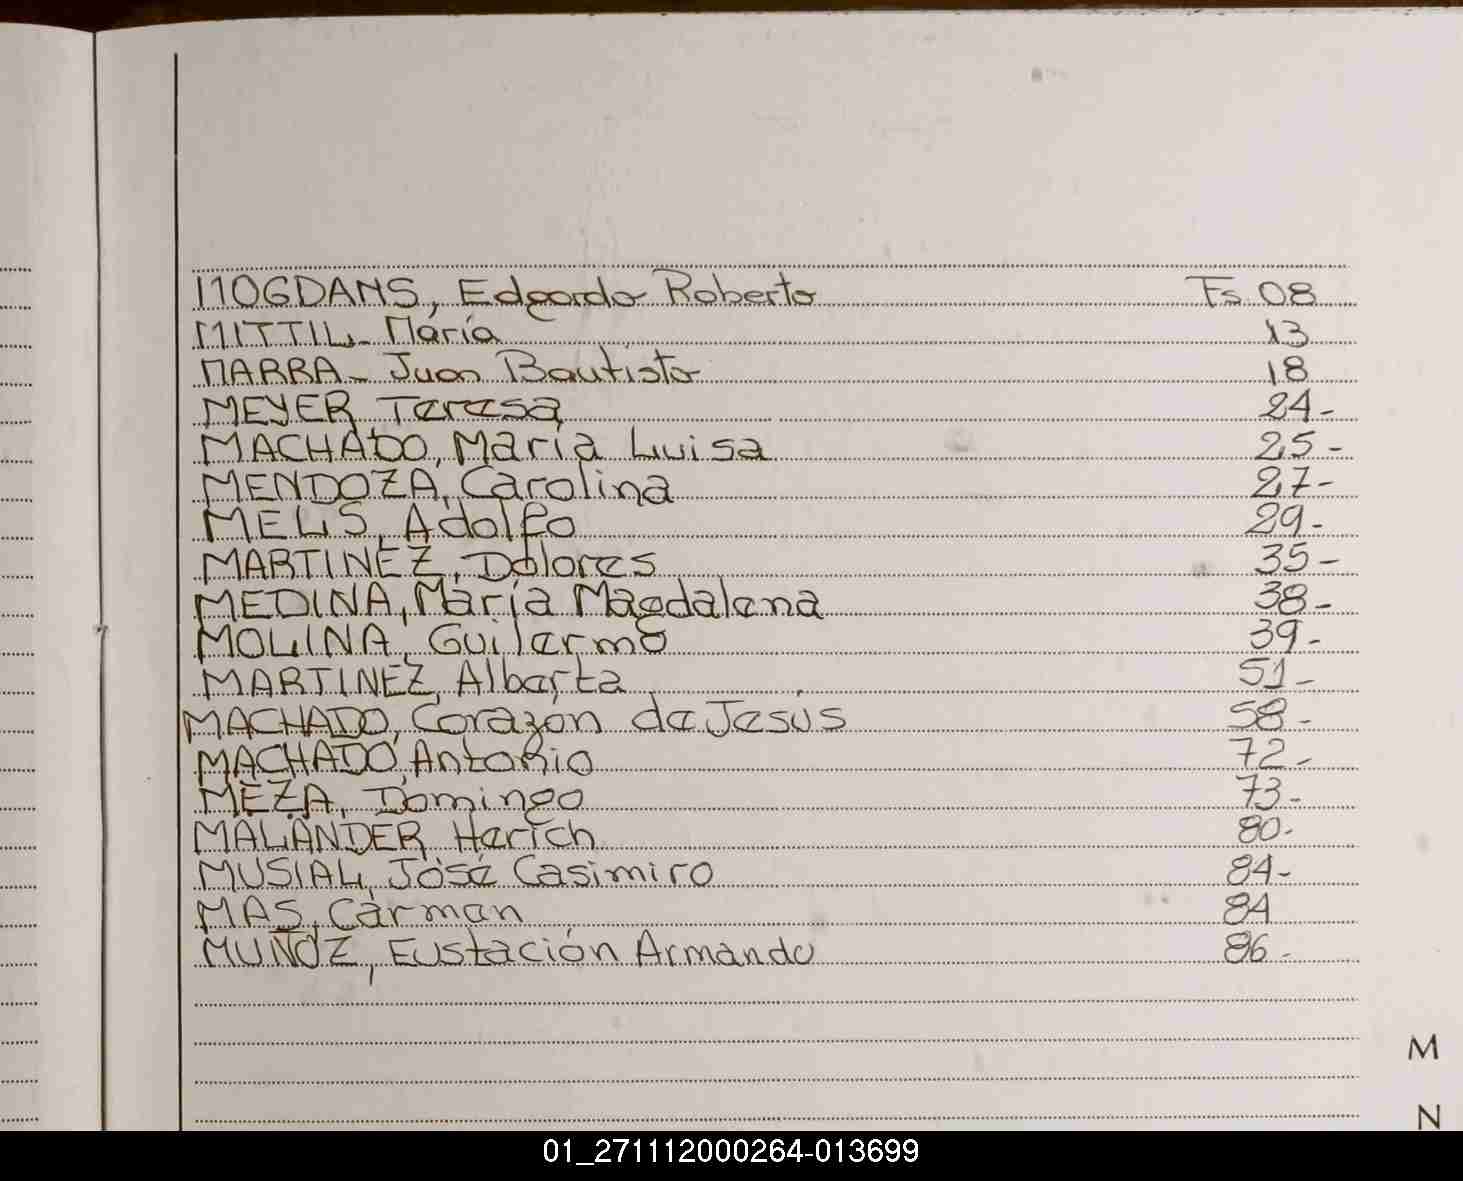 MOGDANS, Edgardo Roberto Fs. 08
MITTIL, María 13
MARRA - Juan Bautista 18
MEYER, Teresa 24-
MACHADO, María Luisa 25-
MENDOZA, Carolina 27-
MELIS, Adolfo 29-
MARTINEZ, Dolores 35-
MEDINA, María Magdalena 38-
MOLINA, Guilermo 39-
MARTINEZ, Alberta 51-
MACHADO, Corazón de Jesús 58-
MACHADO, Antonio 72-
MEZA, Domingo 73-
MALANDER, Herich 80-
MUSIAL, José Casimiro 84-
MAS, Carmen 84
MUÑOZ, Eustación Armando 86-
M
N
01_271112000264-013699